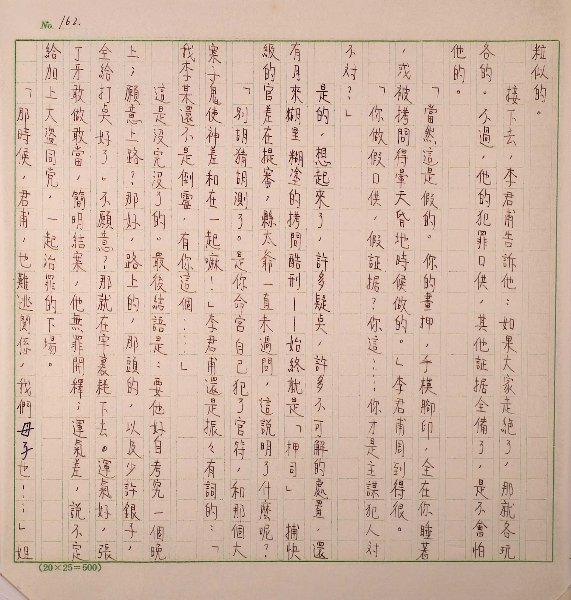 No. 162.
粒似的。
接下去，李君甫告訴他：如果大家走絕了，那就各玩
各的。不過，他的犯罪口供，其他証据全備了，是不會怕
他的。
「當然這是假的。你的畫押，手模腳印，全在你睡著
，或被拷問得暈天昏地時候做的。」李君甫周到得很。
「你做假口供，假証据？你這……你才是主謀犯人对
不对？」
是的，想起來了，許多疑臭，許多不可解的處置，還
有月來糊里糊塗的拷問酷刑——始終就是「押司」捕快
級的官差在提審，縣太爺一直未過問，這說明了什麼呢？
「別胡猜胡測了。是你命宮自己犯了官符，和那個大
寨主鬼使神差和在一起嘛！」李君甫還是振々有詞的：「
我李某還不是倒霊，有你這個……」
這是沒完沒了的。最後結語是：要他好自考完一個晚
上；願意上路？那好，路上的，那頭的，以及少許銀子，
全給打奌好了。不願意？那就在牢裏耗下去。運氣好，張
丁牙敢做敢當，簡明結案，他無罪開釋；運氣差，說不定
給加上大盜同完，一起治罪的下場。
「那時候，君甫，也難逃關係，我們母子也！……」姐
(20×25=500)